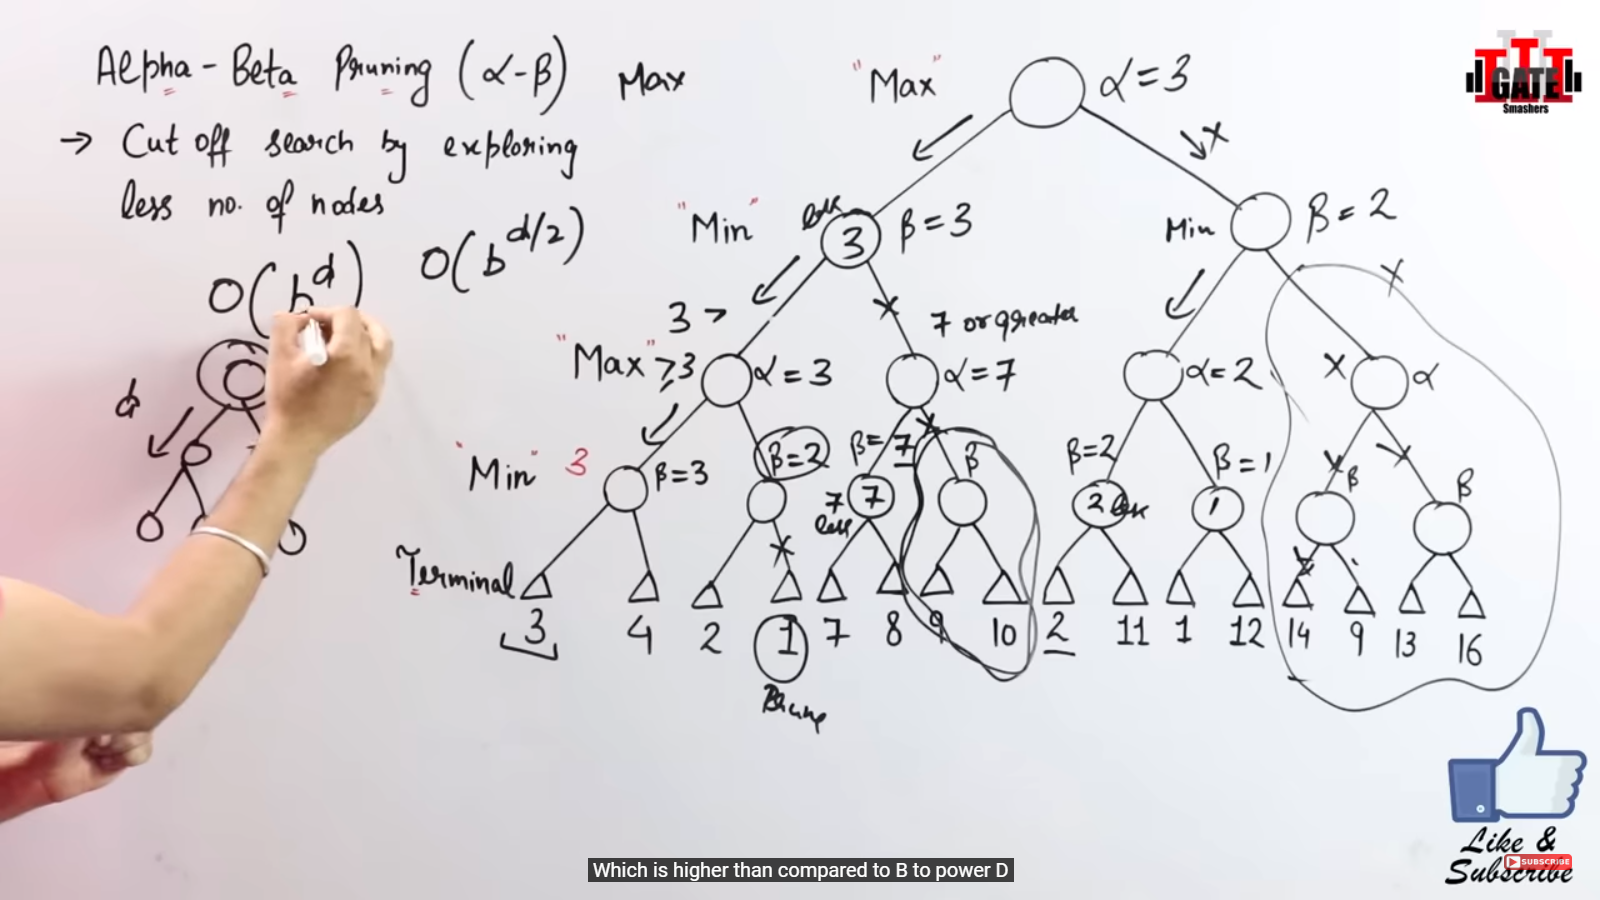 Alpha-Beta Pruning (α-β) Max
→ Cut off search by exploring
less no. of nodes
O(b^d) O(b^d/2)
d
"Max" α=3
"Min" less 3 β=3
Min β=2
3 >
"Max" ≥3 α=3
7 or greater
α=7
α=2
α
"Min" 3 β=3
β=2
β=7
7 7
less
β
β=2
2 less
β=1
1
β
β
Terminal
3 4 2 1 7 8 9 10 2 11 1 12 14 9 13 16
Prune
GATE
Smashers
Like &
Subscribe
SUBSCRIBE
Which is higher than compared to B to power D